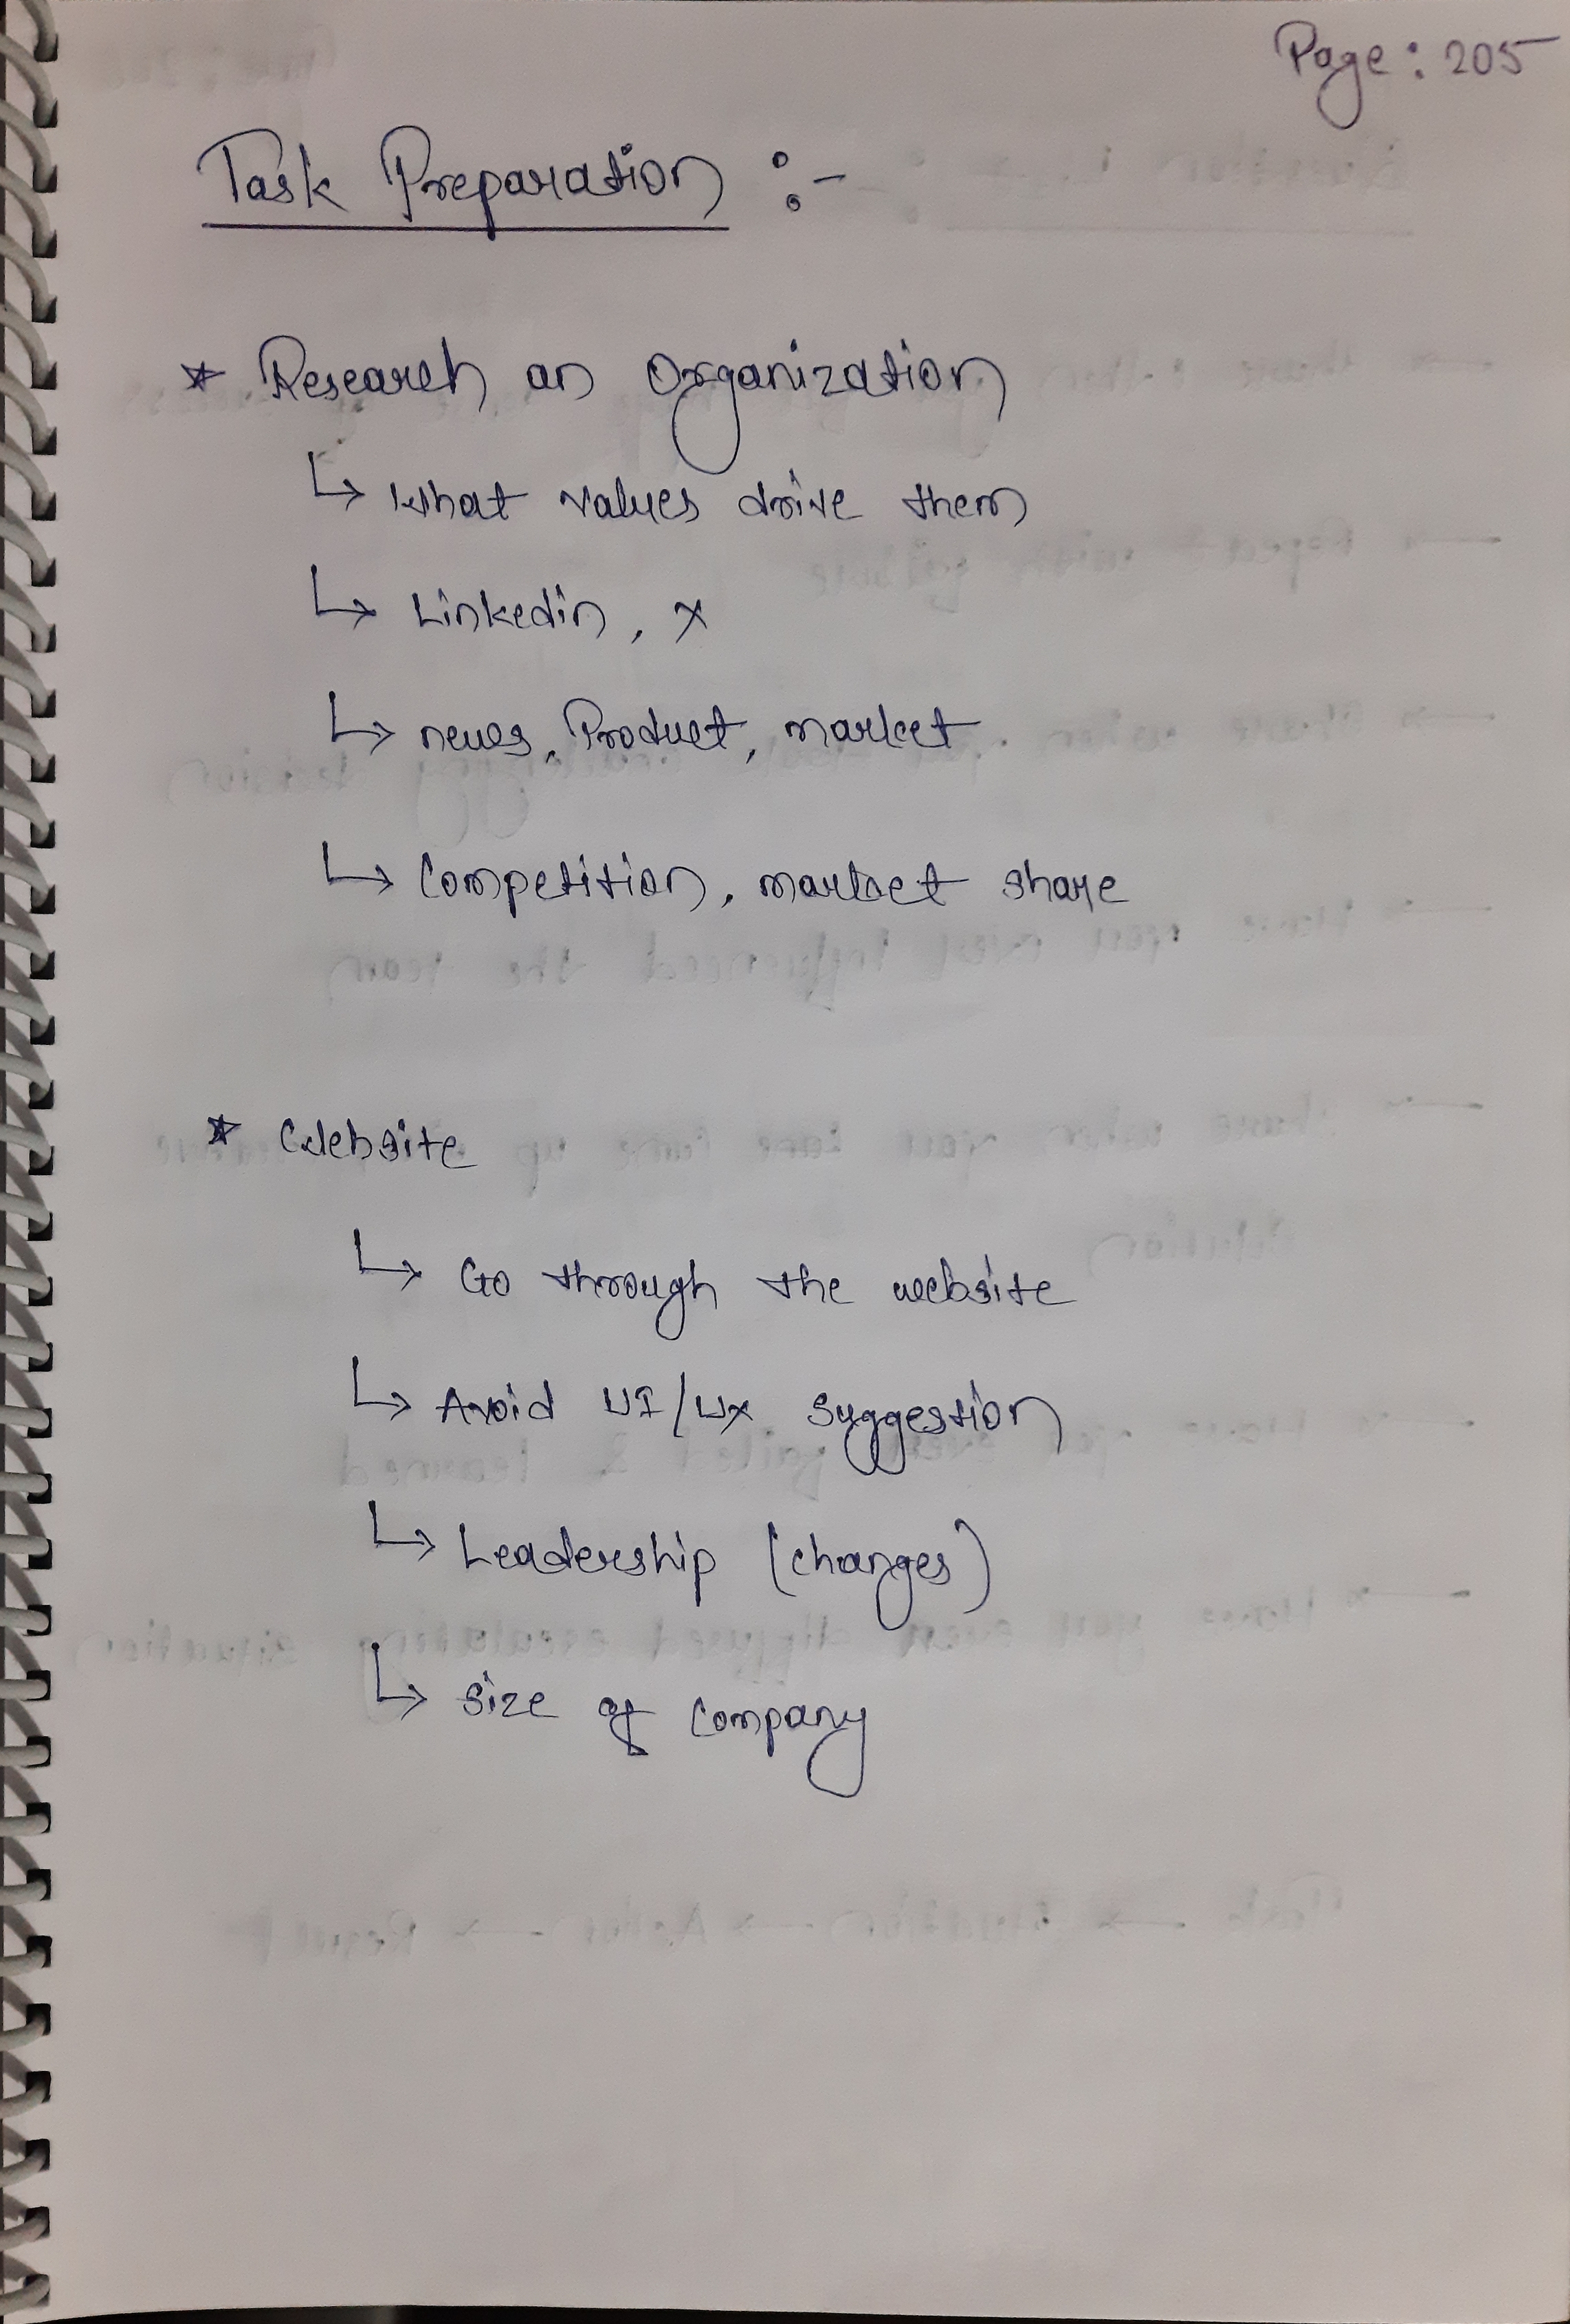 Page: 205
Task Preparation :-
* Research an Organization
↳ What values drive them
↳ Linkedin, X
↳ news, Product, market
↳ Competition, market share
* Website
↳ Go through the website
↳ Avoid UI/UX suggestion
↳ Leadership (changes)
↳ Size of Company